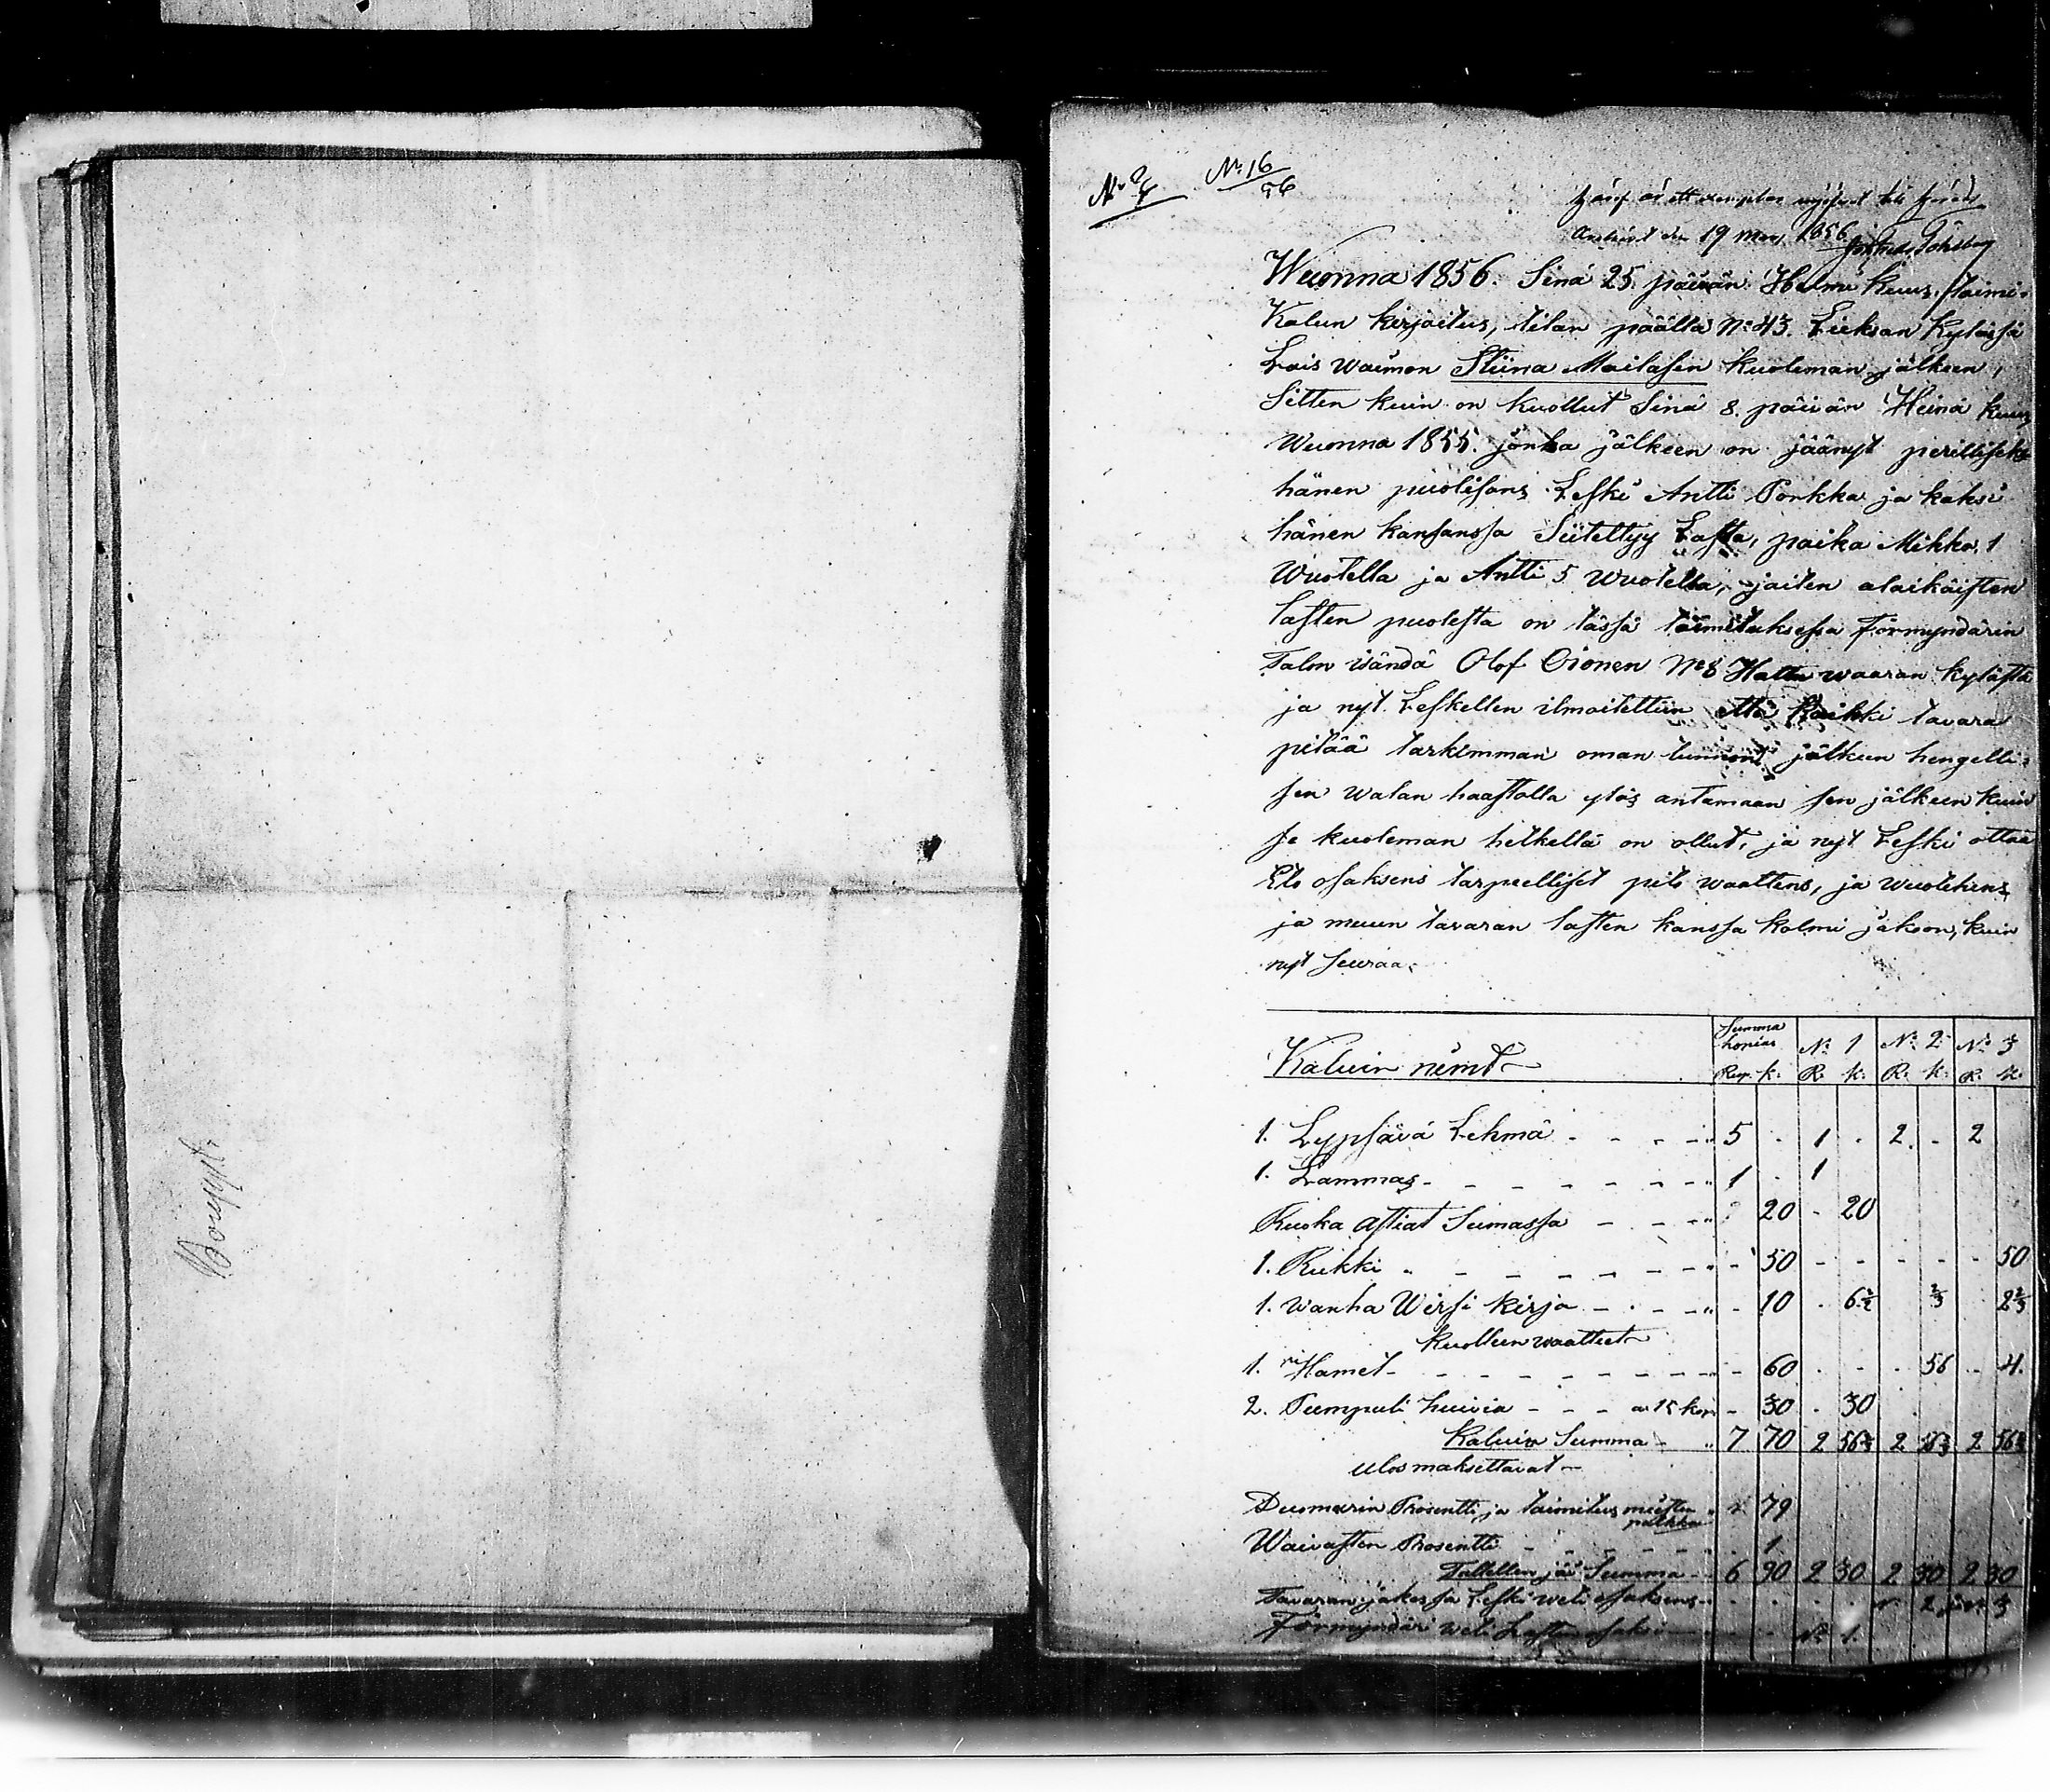 Bouppt.
No 16
56
den 19 1856
Wuonna 1856. Sinä 25 päivän Helmi Kuus. /taimi-
Kalun kirjoitus, tilan päällä No 43. Lieksan Kylässä
Lois Waimon Stiina Moilasen kuoleman jälkeen,
Sitten kuin on kuollut Sinä 8. päivän Heinä kuus
Wuonna 1855. jonka jälkeen on jäänyt perilliseks
hänen puolisons Leski Antti Porkka ja kaksi
hänen kansansa Siiteltyy Lasta, poika Mikko, 1
Wuotella ja Antti 5 Wuotella, joiten alaikäisten
lasten puolesta on tässä toimituksessa Förmyndärin
Talon isändä Olof Oionen No 8 Hattu waaran kylästä
ja nyt Leskellen ilmoitettiin että kaikki tavara
pitää tarkimman oman tunnont jälkeen hengelli-
sen walan haastolla ylös antamaan sen jälkeen kuin
se kuoleman hetkellä on ollut, ja nyt Leski ottaa
Eto osaksens tarpeelliset pito waattens, ja wuotehens
ja muun tavaran lasten kanssa kolmi jakoon, kuin
nyt seuraa.
Kaluin nimet Summa hopias No 1 No 2 No 3
Rup. k. R. k. R. k. R. k.
1. Lypsävä Lehmä - - - - 5 - 1 - 2 - 2
1. Lammas - - - - - - - 1 - 1
Ruoka astiat Sumassa - - - 20 - 20
1. Rukki - - - - - - - - 50 - - - - - 50
1. wanha Wirsi kirja - - - - 10 - 6 2/3 2 2/3
kuolleen waatteet
1. Hamet - - - - - - - - 60 - - - 56 - 4.
2. Tumpuli huivia - - - a 15 kop - 30 - 30
Kaluin Summa - 7 70 2 56 2/3 2 56 2/3 2 56 2/3
ulos maksettavat -
Duomarin Prosentti ja toimitus miesten palkka 79
Waivasten Prosentti - - - - - 1
Tallellen jää Summa - 6 90 2 30 2 30 2 30
Tavaran jakossa Leski weti osaksens - - - - No 2 ja No 3
Förmyndäri weti Lasten osaksi - - - No 1.